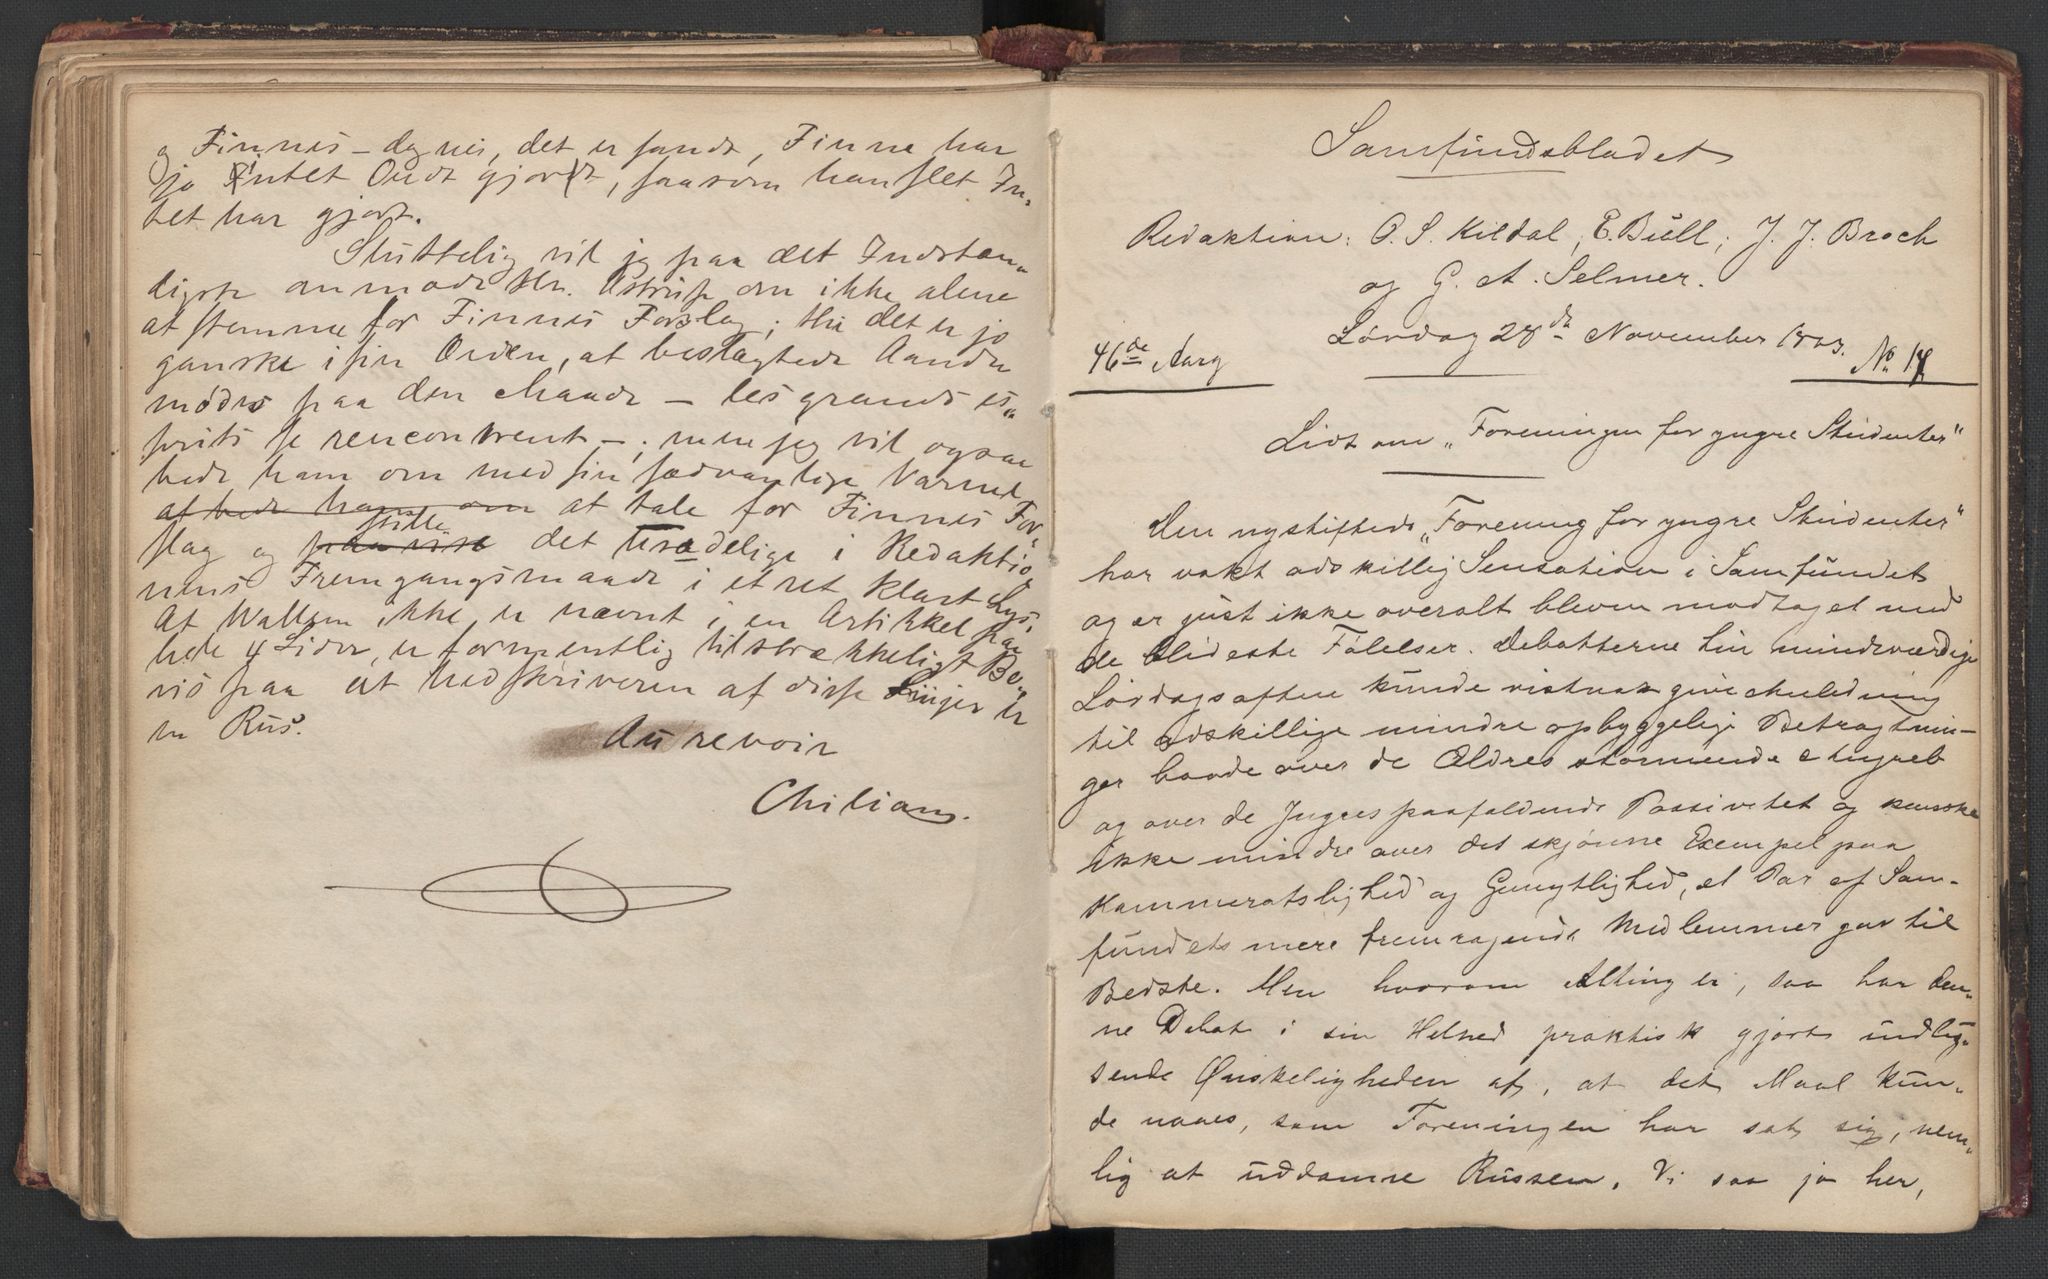 og Finnes – dog nei, det er sandt, Finne har
jo intet Ondt gjort, saasom han slet In-
tet har gjort.
Sluttelig vil jeg paa det Indstæn-
digste anmode Hr. Astrup om ikke alene
at stemme for Finnes Forslag; thi det er jo
ganske i sin Orden, at beslægtede Aander
mødes paa den Maade – les grands es-
prits se rencontrent –; men jeg vil ogsaa
bede ham om med sin sædvanlige Varme
at bede ham om at tale for Finnes For-
slag og paavise stille det Usædelige i Redaktio-
nens Fremgangsmaade i et ret klart Lys.
At Wallem ikke er nævnt i en Artikkel paa
hele 4 Sider, er formentlig tilstrækkeligt Be-
vis paa at Nedskriveren af disse Linjer er
en Rus.
Au revoir
Chilian.
Samfundsbladet
Redaktion: O. S. Kildal, E. Bull, J. J. Broch
og G. A. Selmer.
Lørdag 28de November 1903.
46de Aarg
No. 14
Lidt om „Foreningen for yngre Studenter“
Den nystiftede „Forening for yngre Studenter“
har vakt adskillig Sensation i Samfundet
og er just ikke overalt bleven modtaget med
de blideste Følelser. Debatterne hin mindeværdige
Lørdagsaften kunde vistnok give Anledning
til adskillige mindre opbyggelige Betragtnin-
ger baade over de Ældres stormende Angreb
og over de Yngres paafaldende Passivitet og kanske
ikke mindre over det skjønne Exempel paa
Kammeratslighed og Gemytlighed, et Par af Sam-
fundets mere fremragende Medlemmer gav til
Bedste. Men hvorom Alting er, saa har den-
ne Debat i sin Helhed praktisk gjort indly-
sende Ønskeligheden af, at det Maal kun-
de naaes, som Foreningen har sat sig, nem-
lig at uddanne Russen. Vi saa jo her,